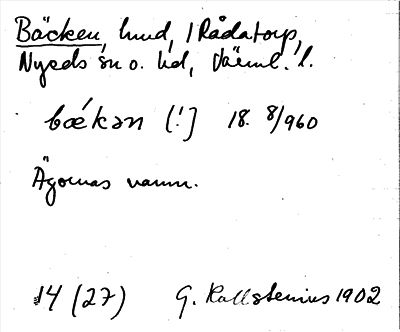 Bäcken, hmd, 1 Rådatorp,
Nyeds sn o. hd, Värml. l.
bœ́kən [!] 18. 8/960
Ägornas namn.
14 (27) G. Kallstenius 1902